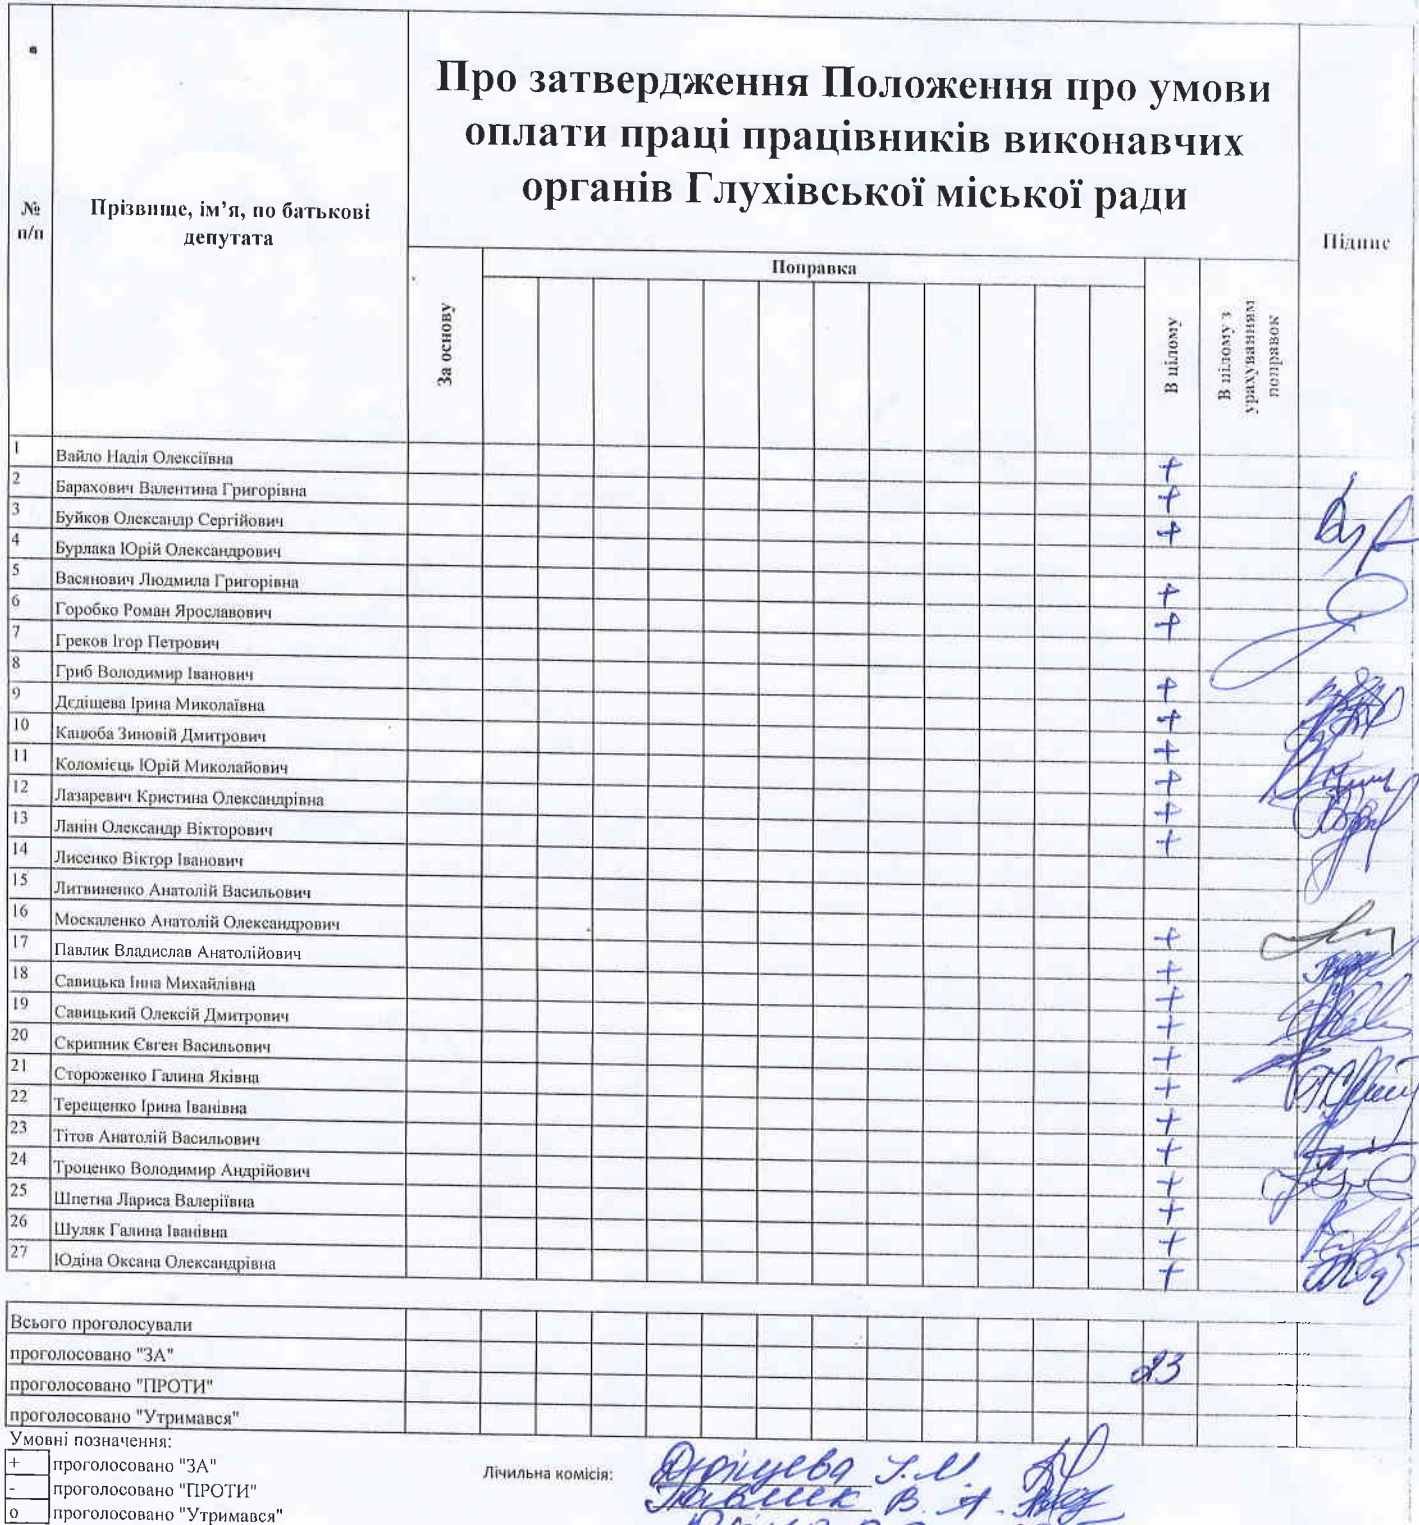 Про затвердження Положення про умови
оплати праці працівників виконавчих
органів Глухівської міської ради
№ п/п
Прізвище, ім’я, по батькові
депутата
За основу
Поправка
В цілому
В цілому з
урахуванням
поправок
Підпис
1 Вайло Надія Олексіївна +
2 Барахович Валентина Григорівна +
3 Буйков Олександр Сергійович +
4 Бурлака Юрій Олександрович
5 Васянович Людмила Григорівна +
6 Горобко Роман Ярославович +
7 Греков Ігор Петрович
8 Гриб Володимир Іванович +
9 Дєдіщева Ірина Миколаївна +
10 Кацюба Зиновій Дмитрович +
11 Коломієць Юрій Миколайович +
12 Лазаревич Кристина Олександрівна +
13 Ланін Олександр Вікторович +
14 Лисенко Віктор Іванович
15 Литвиненко Анатолій Васильович
16 Москаленко Анатолій Олександрович +
17 Павлик Владислав Анатолійович +
18 Савицька Інна Михайлівна +
19 Савицький Олексій Дмитрович +
20 Скрипник Євген Васильович +
21 Стороженко Галина Яківна +
22 Терещенко Ірина Іванівна +
23 Тітов Анатолій Васильович +
24 Троценко Володимир Андрійович +
25 Шпетна Лариса Валеріївна +
26 Шуляк Галина Іванівна +
27 Юдіна Оксана Олександрівна +
Всього проголосували
проголосовано "ЗА" 23
проголосовано "ПРОТИ"
проголосовано "Утримався"
Умовні позначення:
+ проголосовано "ЗА"
- проголосовано "ПРОТИ"
о проголосовано "Утримався"
Лічильна комісія: Дєдіщева І.М.
Павлик В.А.